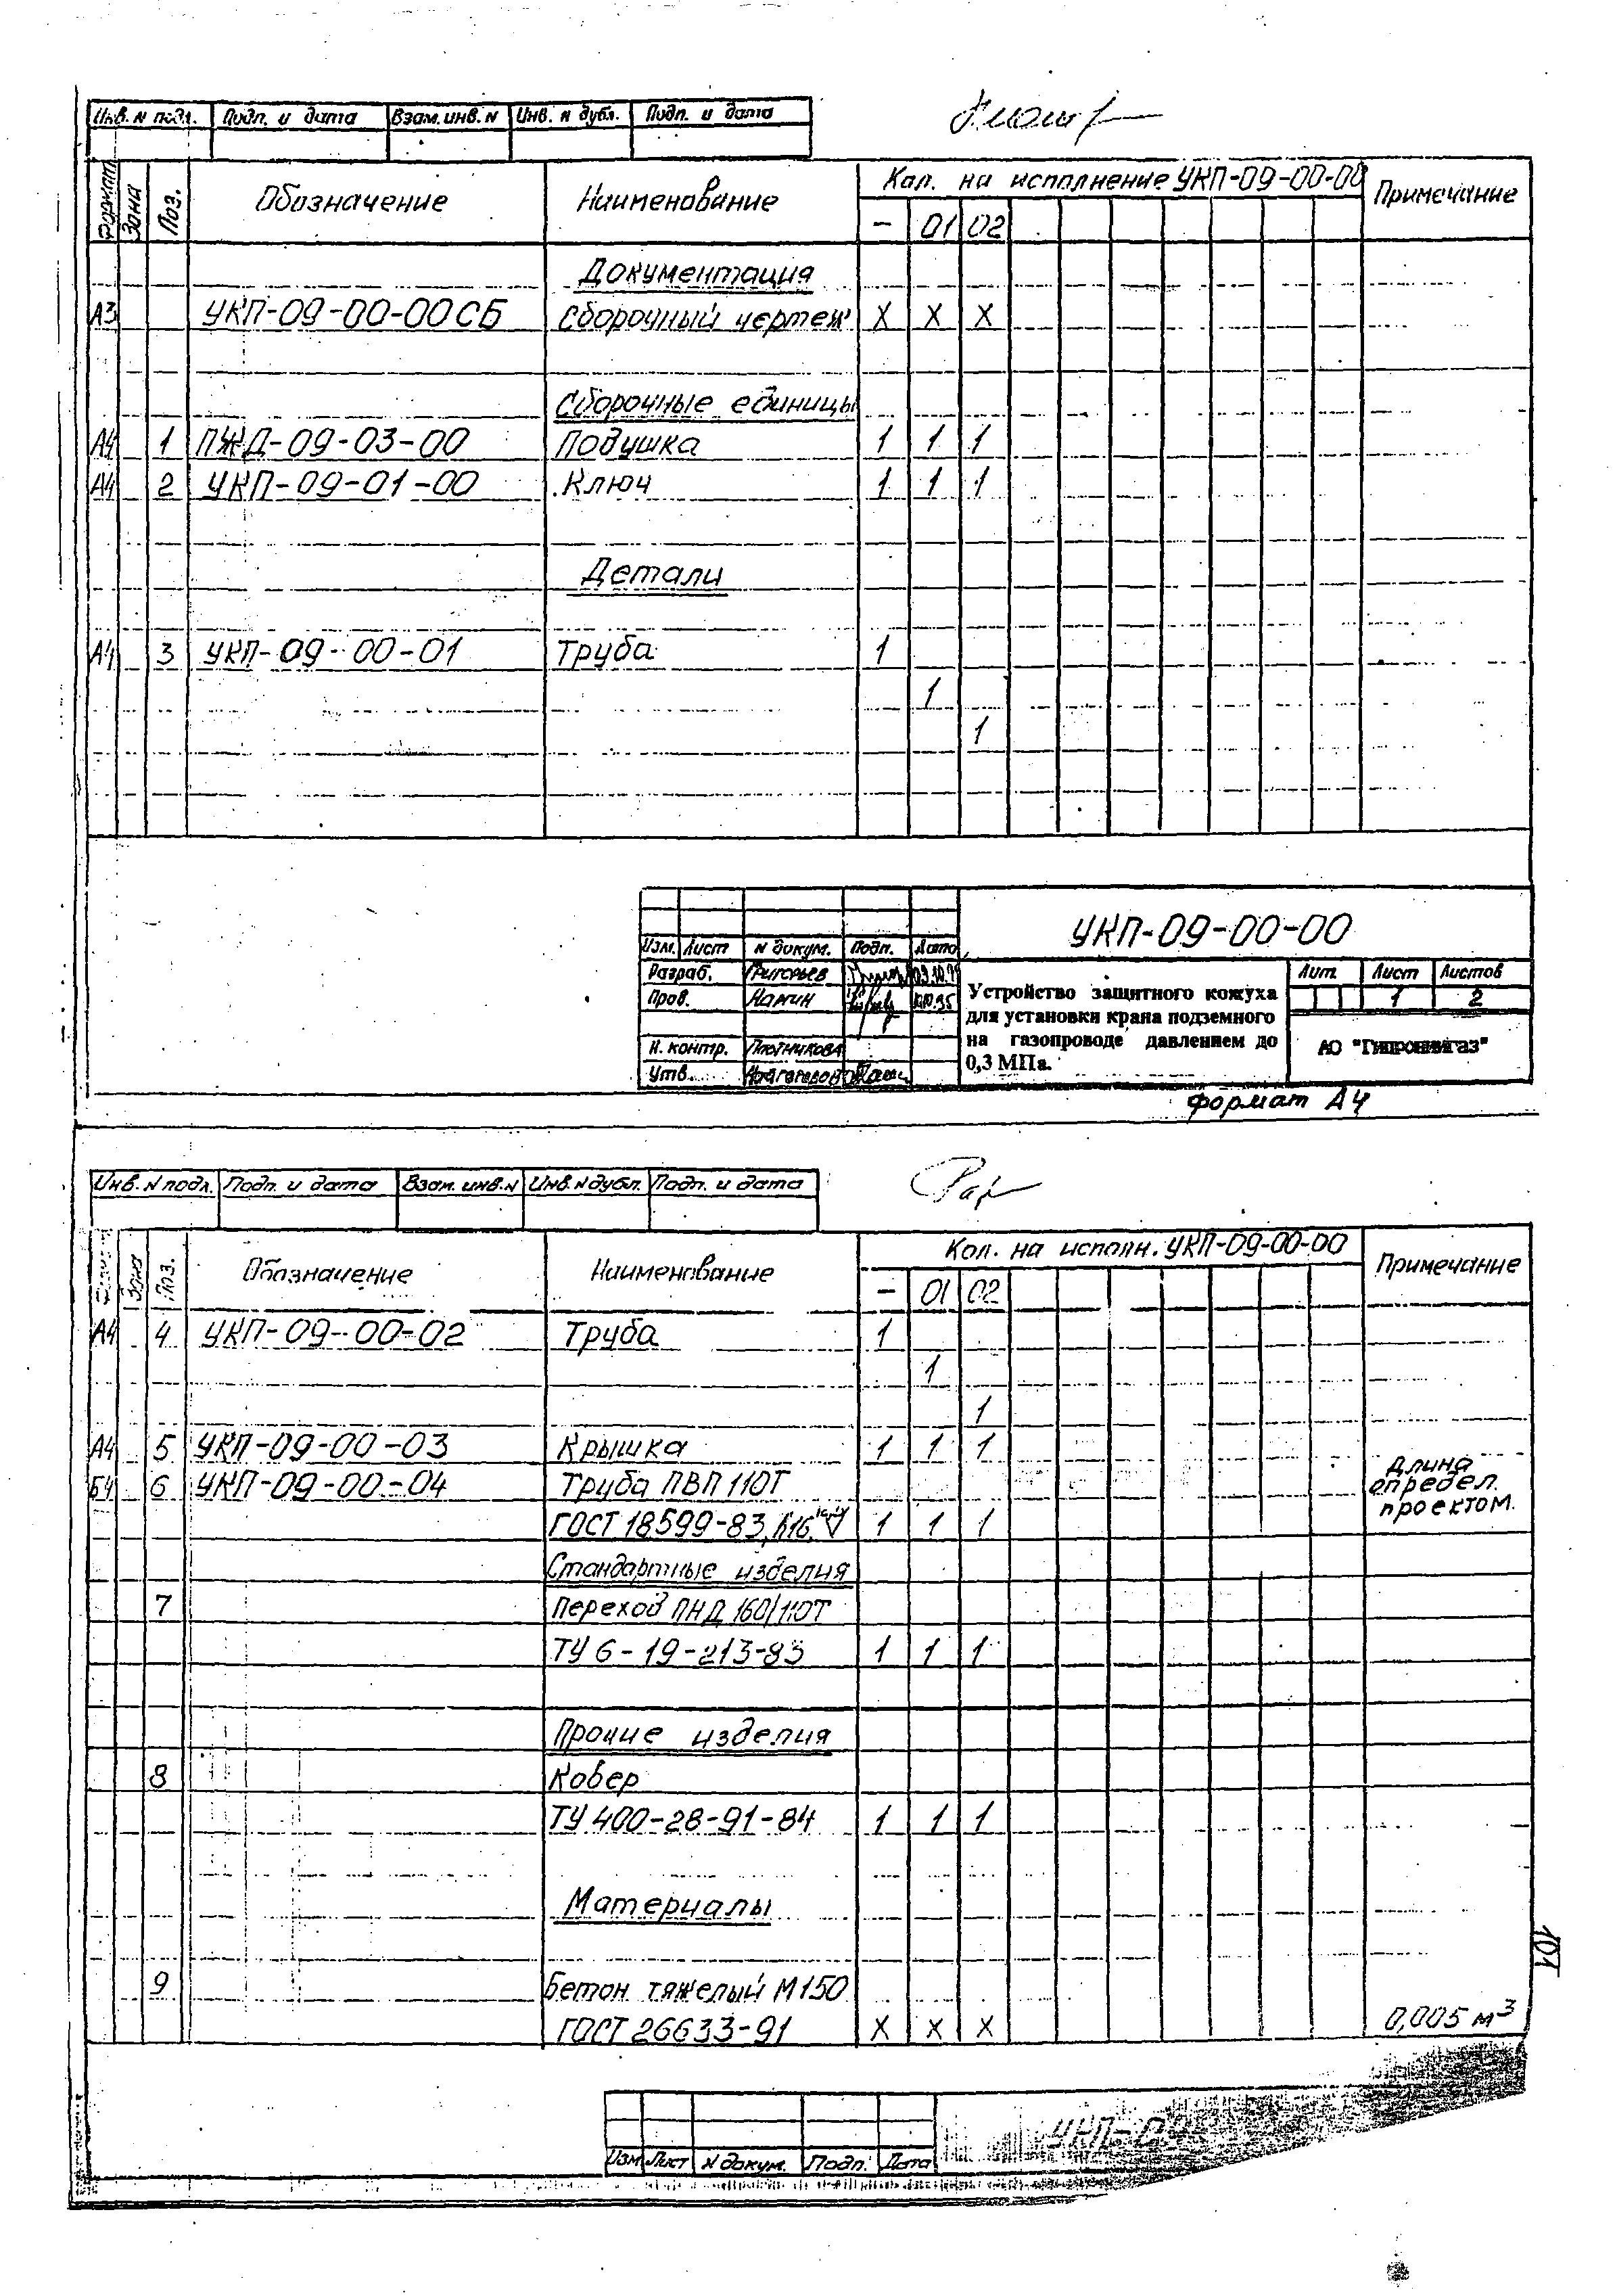 Инв. N подл. Подп. и дата Взам. инв. N Инв. N дубл. Подп. и дата
Формат Зона Поз. Обозначение Наименование Кол. на исполнение УКП-09-00-00 Примечание
- 01 02
Документация
А3 УКП-09-00-00СБ Сборочный чертеж Х Х Х
Сборочные единицы
А4 1 ПЖД-09-03-00 Подушка 1 1 1
А4 2 УКП-09-01-00 Ключ 1 1 1
Детали
А4 3 УКП-09-00-01 Труба 1
1
1
УКП-09-00-00
Изм. Лист N докум. Подп. Дата
Разраб. Григорьев
Пров. Намин
Н. контр. Плотникова
Утв.
Устройство защитного кожуха
для установки крана подземного
на газопроводе давлением до
0,3 МПа.
Лит. Лист Листов
1 2
АО "Гипрониигаз"
Формат А4
Инв. N подл. Подп. и дата Взам. инв. N Инв. N дубл. Подп. и дата
Зона Поз. Обозначение Наименование Кол. на исполн. УКП-09-00-00 Примечание
- 01 02
А4 4 УКП-09-00-02 Труба 1
1
1
А4 5 УКП-09-00-03 Крышка 1 1 1
Б4 6 УКП-09-00-04 Труба ПВП 110Т
Длина
определ.
проектом.
ГОСТ 18599-83, 1 1 1
Стандартные изделия
7 Переход ПНД 160/110Т
ТУ 6-19-213-83 1 1 1
Прочие изделия
8 Ковер
ТУ 400-28-91-84 1 1 1
Материалы
9 Бетон тяжелый М150
ГОСТ 26633-91 Х Х Х 0,005 м³
101
Изм Лист N докум. Подп. Дата